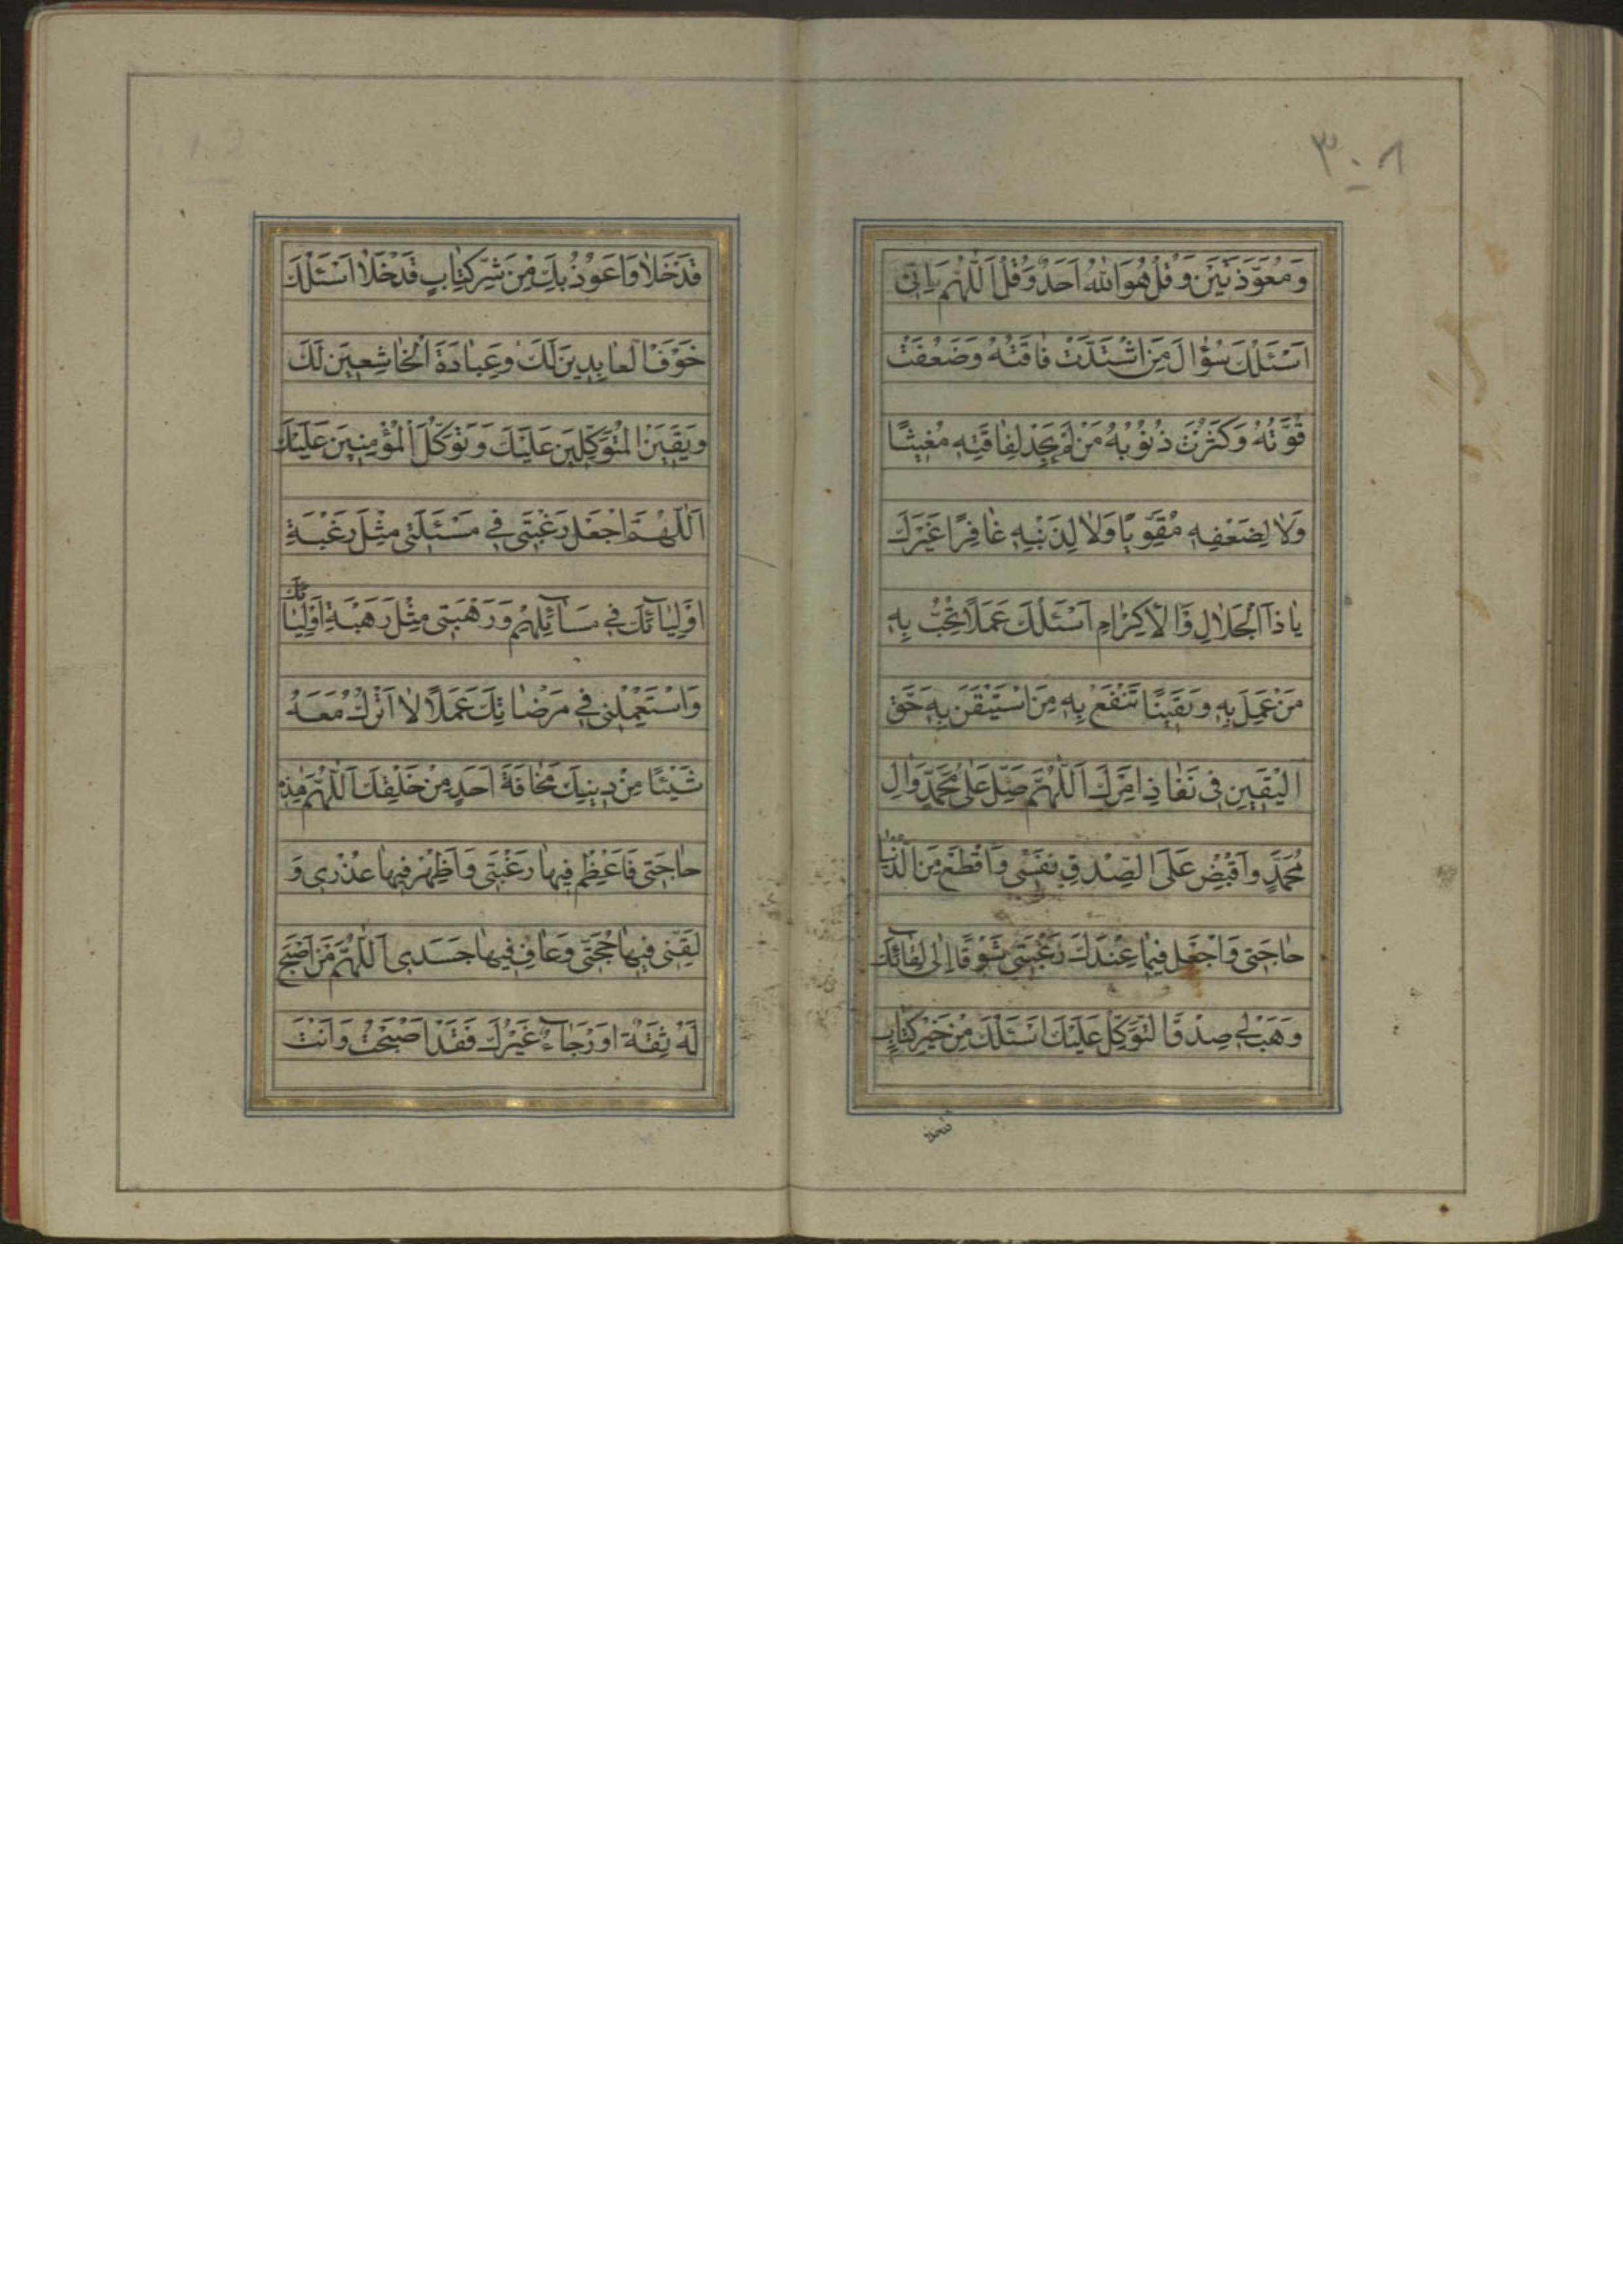 ۳۰۸
وَمُعَوَّذَتَيْنِ وَقُلْ هُوَ اللّٰهُ اَحَدٌ وَقُلْ اَللّٰهُمَّ اِنّى
اَسْئَلُكَ سُؤٰالَ مَنِ اشْتَدَّتْ فٰاقَتُهُ وَضَعُفَتْ
قُوَّتُهُ وَكَثُرَتْ ذُنُوبُهُ مَنْ لَمْ يَجِدْ لِفٰاقَتِهِ مُغيثًا
وَلاٰ لِضَعْفِهِ مُقَوِّيًا وَلاٰ لِذَنْبِهِ غٰافِرًا غَيْرَكَ
يٰا ذَا الْجَلاٰلِ وَالْاِكْرٰامِ اَسْئَلُكَ عَمَلًا تُحِبُّ بِهِ
مَنْ عَمِلَ بِهِ وَيَقينًا تَنْفَعُ بِهِ مَنِ اسْتَيْقَنَ بِهِ حَقَّ
الْيَقينِ فى نَفٰاذِ اَمْرِكَ اَللّٰهُمَّ صَلِّ عَلٰى مُحَمَّدٍ وَاٰلِ
مُحَمَّدٍ وَاقْبِضْ عَلَى الصِّدْقِ نَفْسى وَاقْطَعْ مِنَ الدُّنْيٰا
حٰاجَتى وَاجْعَلْ فيمٰا عِنْدَكَ رَغْبَتى شَوْقًا اِلٰى لِقٰائِكَ
وَهَبْ لى صِدْقَ التَّوَكُّلِ عَلَيْكَ اَسْئَلُكَ مِنْ خَيْرِ كِتٰابٍ
قَدْ خَلاٰ وَاَعُوذُ بِكَ مِنْ شَرِّ كِتٰابٍ قَدْ خَلاٰ اَسْئَلُكَ
خَوْفَ الْعٰابِدينَ لَكَ وَعِبٰادَةَ الْخٰاشِعينَ لَكَ
وَيَقينَ الْمُتَوَكِّلينَ عَلَيْكَ وَتَوَكُّلَ الْمُؤْمِنينَ عَلَيْكَ
اَللّٰهُمَّ اجْعَلْ رَغْبَتى فى مَسْئَلَتى مِثْلَ رَغْبَةِ
اَوْلِيٰائِكَ فى مَسٰائِلِهِمْ وَرَهْبَتى مِثْلَ رَهْبَةِ اَوْلِيٰائِكَ
وَاسْتَعْمِلْنى فى مَرْضٰاتِكَ عَمَلًا لاٰ اَتْرُكُ مَعَهُ
شَيْئًا مِنْ دينِكَ مَخٰافَةَ اَحَدٍ مِنْ خَلْقِكَ اَللّٰهُمَّ هٰذِهِ
حٰاجَتى فَاَعْظِمْ فيهٰا رَغْبَتى وَاَظْهِرْ فيهٰا عُذْرى وَ
لَقِّنى فيهٰا حُجَّتى وَعٰافِ فيهٰا جَسَدى اَللّٰهُمَّ مَنْ اَصْبَحَ
لَهُ ثِقَةٌ اَوْ رَجٰاءٌ غَيْرُكَ فَقَدْ اَصْبَحْتُ وَاَنْتَ